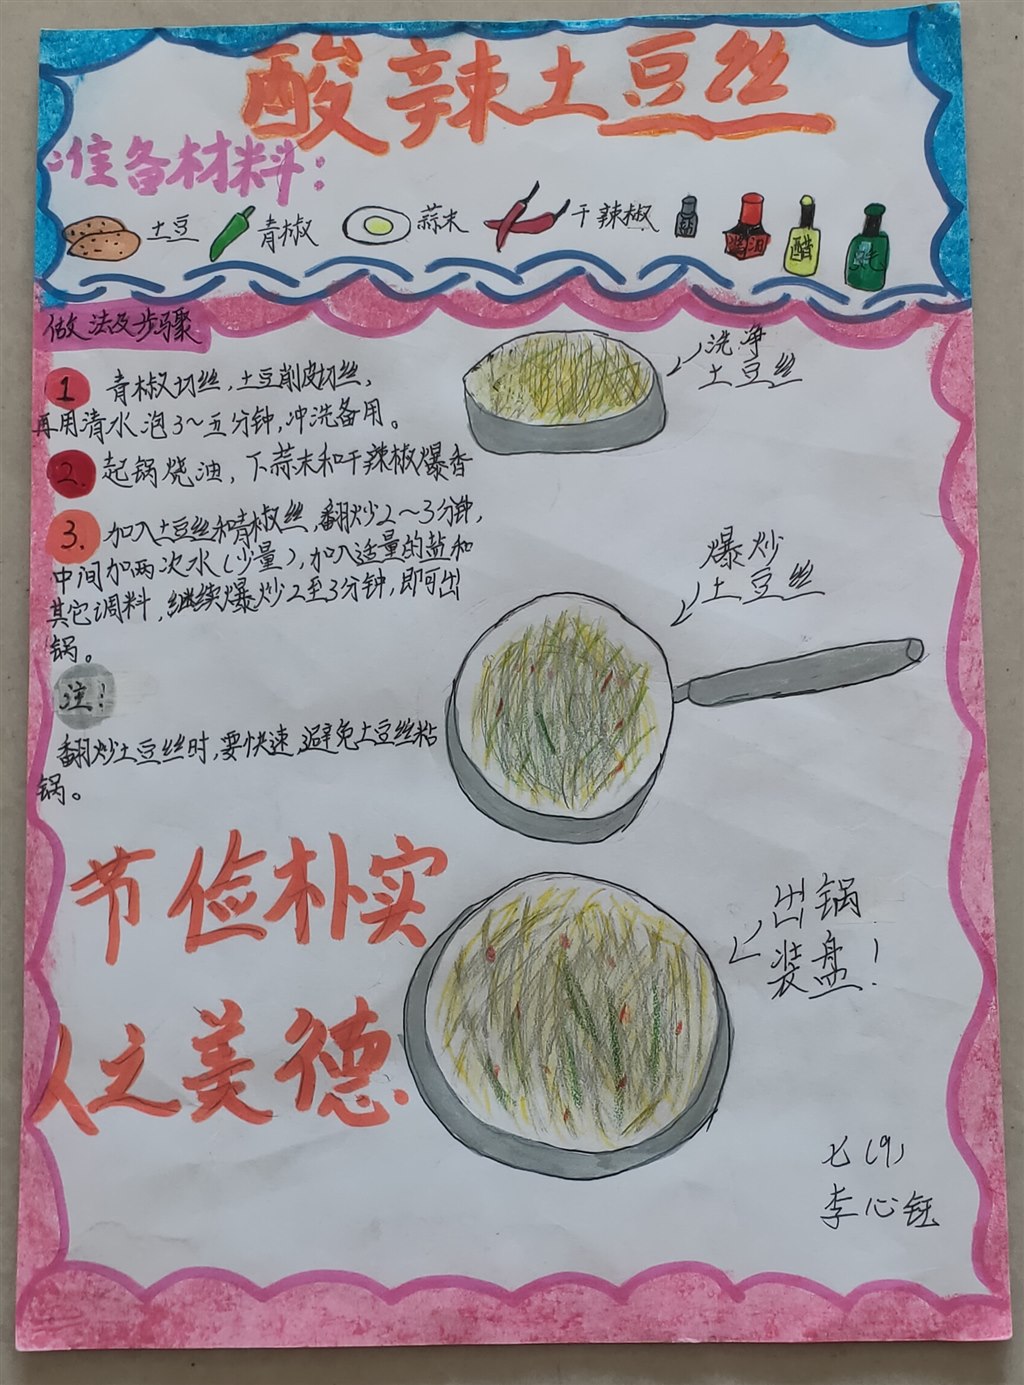 酸辣土豆丝
准备材料：
土豆 青椒 蒜末 干辣椒 盐 酱油 醋
做法及步骤
1 青椒切丝，土豆削皮切丝，
再用清水泡3～五分钟，冲洗备用。
2. 起锅烧油，下蒜末和干辣椒爆香
3. 加入土豆丝和青椒丝，翻炒2～3分钟，
中间加两次水（少量），加入适量的盐和
其它调料，继续爆炒2至3分钟，即可出
锅。
注！
翻炒土豆丝时，要快速，避免土豆丝粘
锅。
洗净
土豆丝
爆炒
土豆丝
出锅
装盘！
节俭朴实
人之美德.
七（9）
李心钰